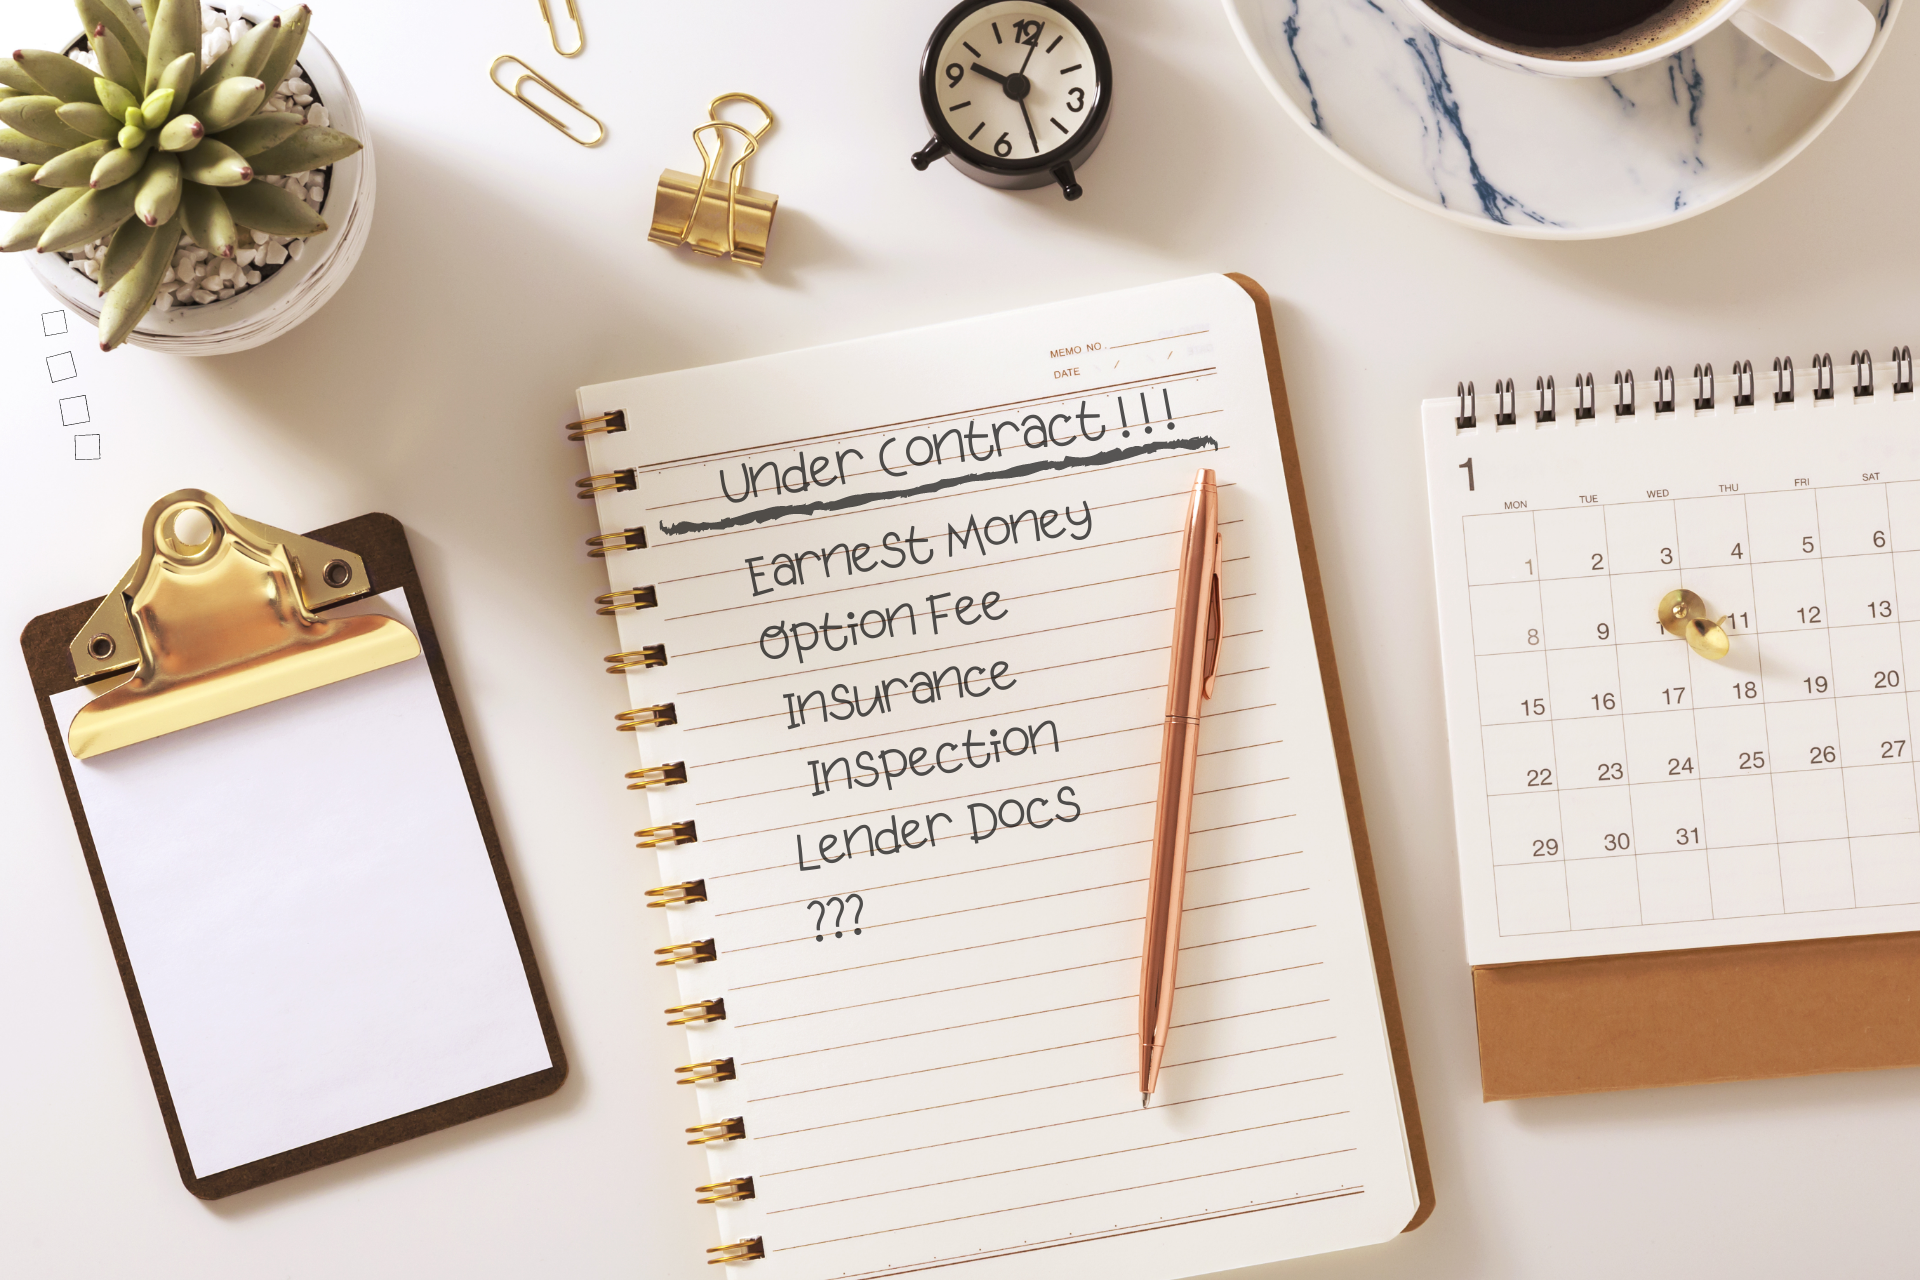 12
9
3
6
MEMO NO.
DATE / /
Under Contract!!!
Earnest Money
Option Fee
Insurance
Inspection
Lender Docs
???
1
MON TUE WED THU FRI SAT
1 2 3 4 5 6
8 9 11 12 13
15 16 17 18 19 20
22 23 24 25 26 27
29 30 31